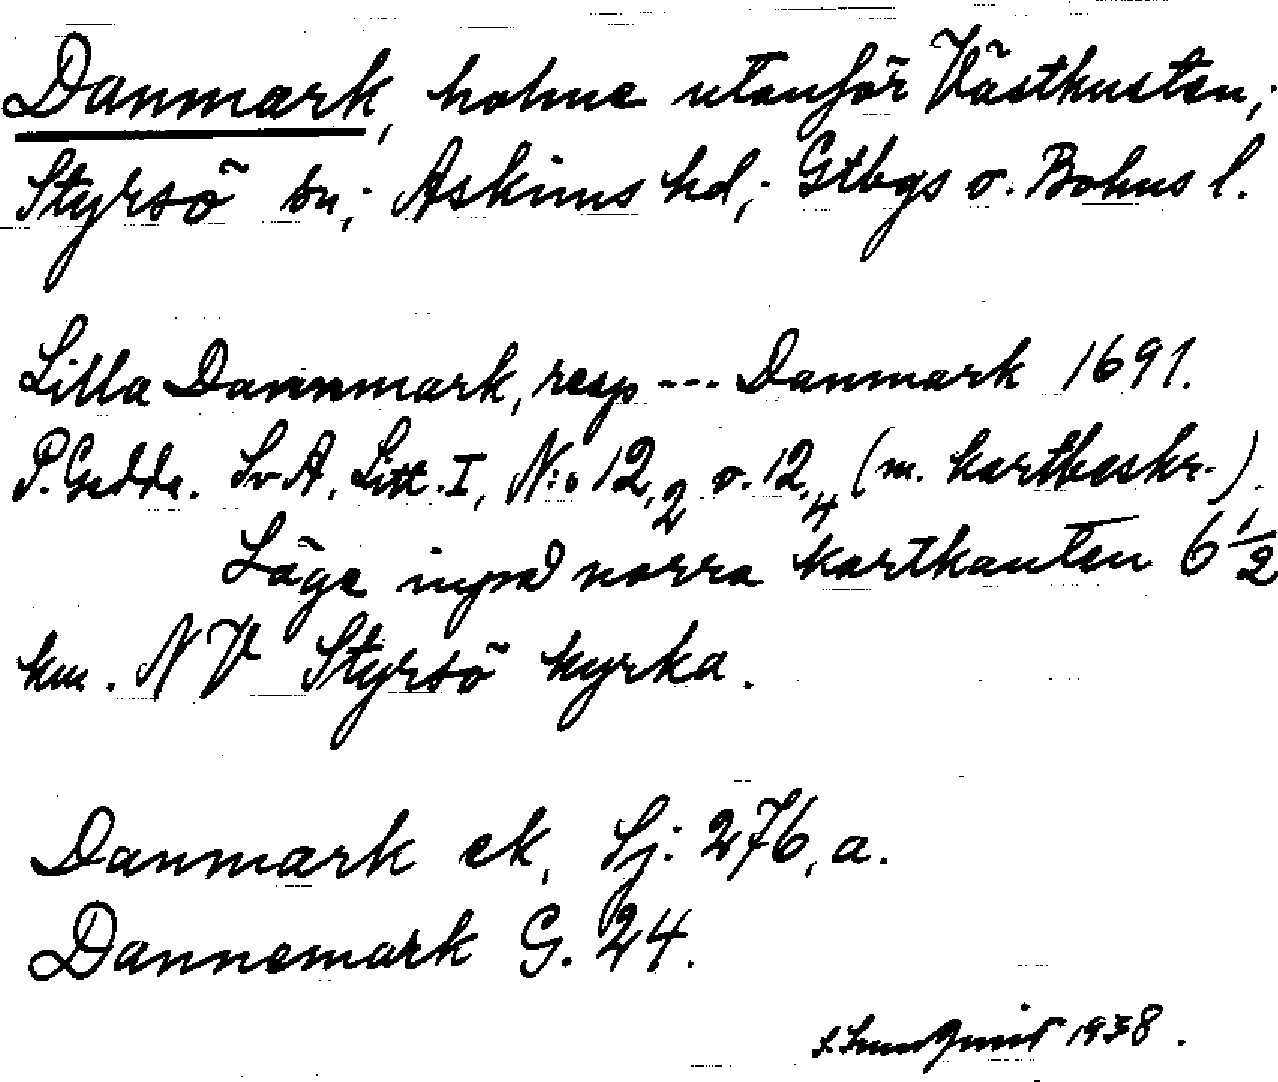 Danmark, holme utanför Västkusten;
Styrsö sn; Askims hd; Gtbgs o. Bohus l.
Lilla Dannmark, resp --- Danmark 1691.
P. Gedda. Sv A. Litt. I, N:o 12,2 o. 12,4 (m. kartbeskr.)
Läge inpå norra kartkanten 6 1/2
km. NV Styrsö kyrka.
Danmark ek, Sj: 276, a.
Dannemark G. 24.
1938.